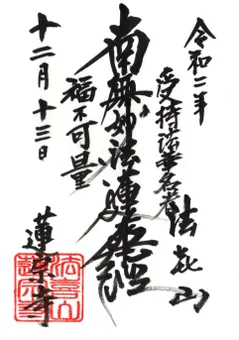 令和二年
法華山
受持法華名者
南無妙法蓮華経
福不可量
十二月十三日
蓮栄寺